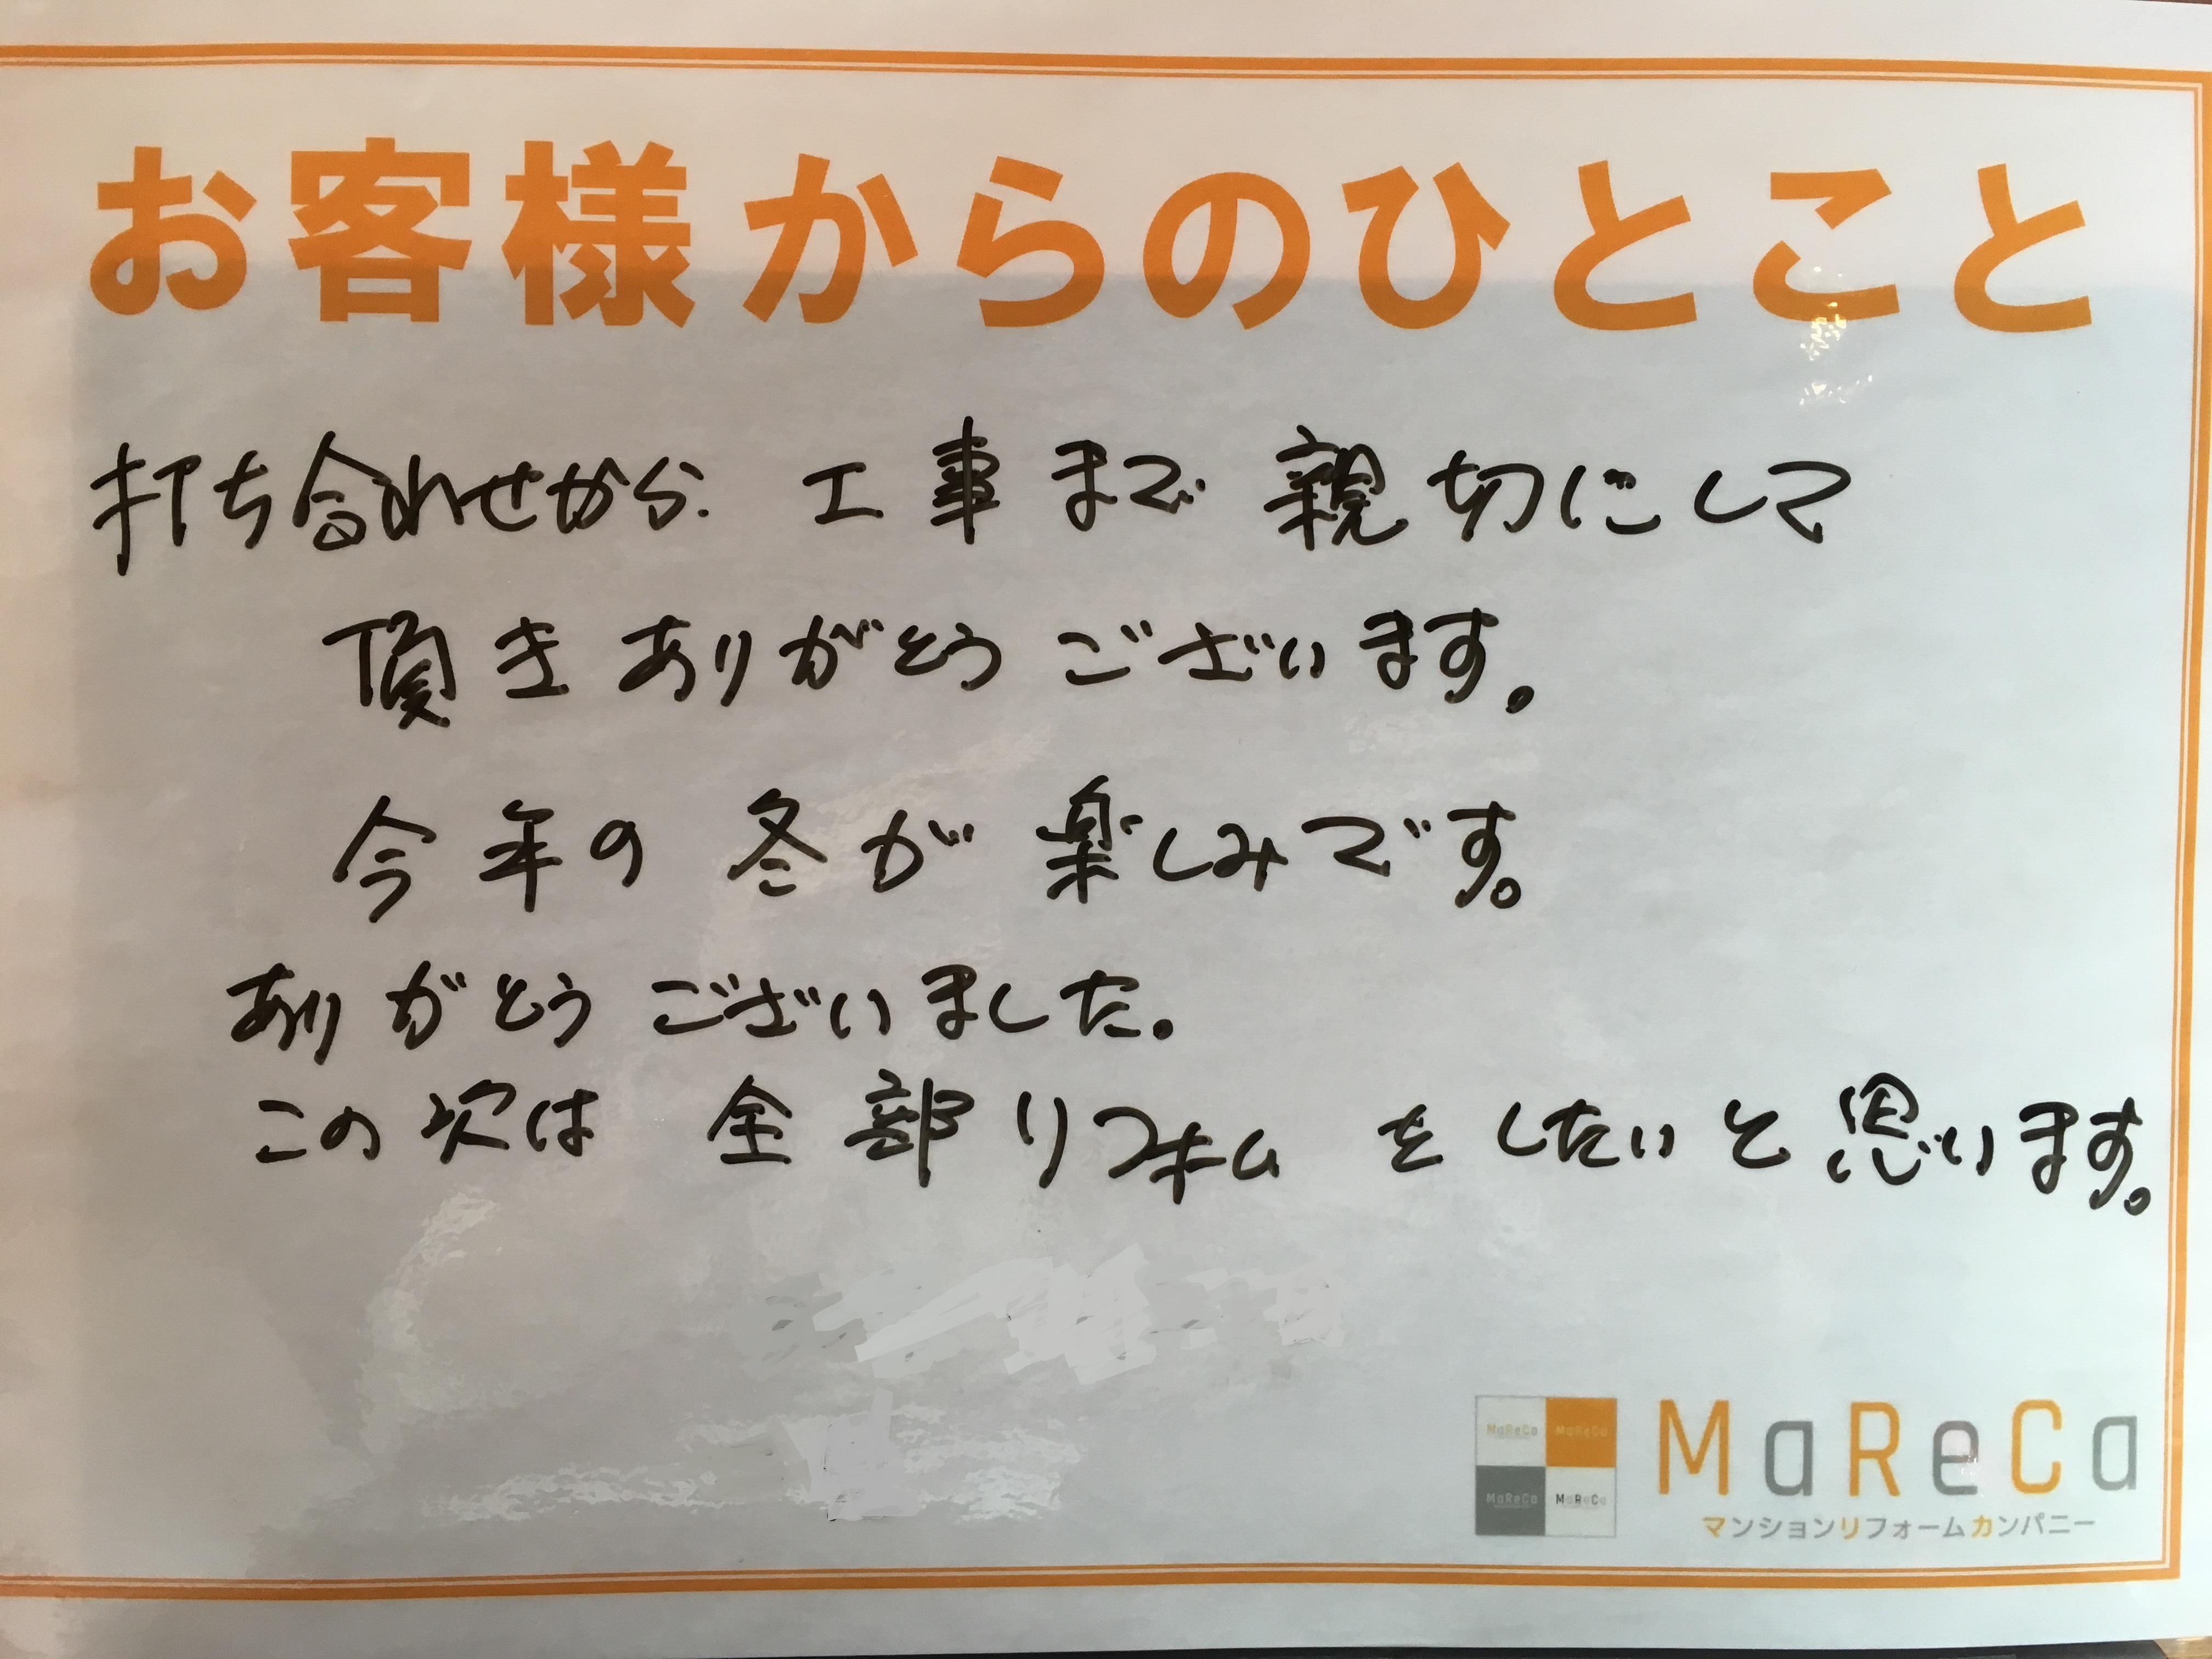 お客様からのひとこと
打ち合わせから. 工事まで親切にして
頂きありがとうございます。
今年の冬が楽しみです。
ありがとうございました。
この次は全部リフォームをしたいと思います。
MaReCa MaReCa
MaReCa MaReCa
MaReCa
マンションリフォームカンパニー